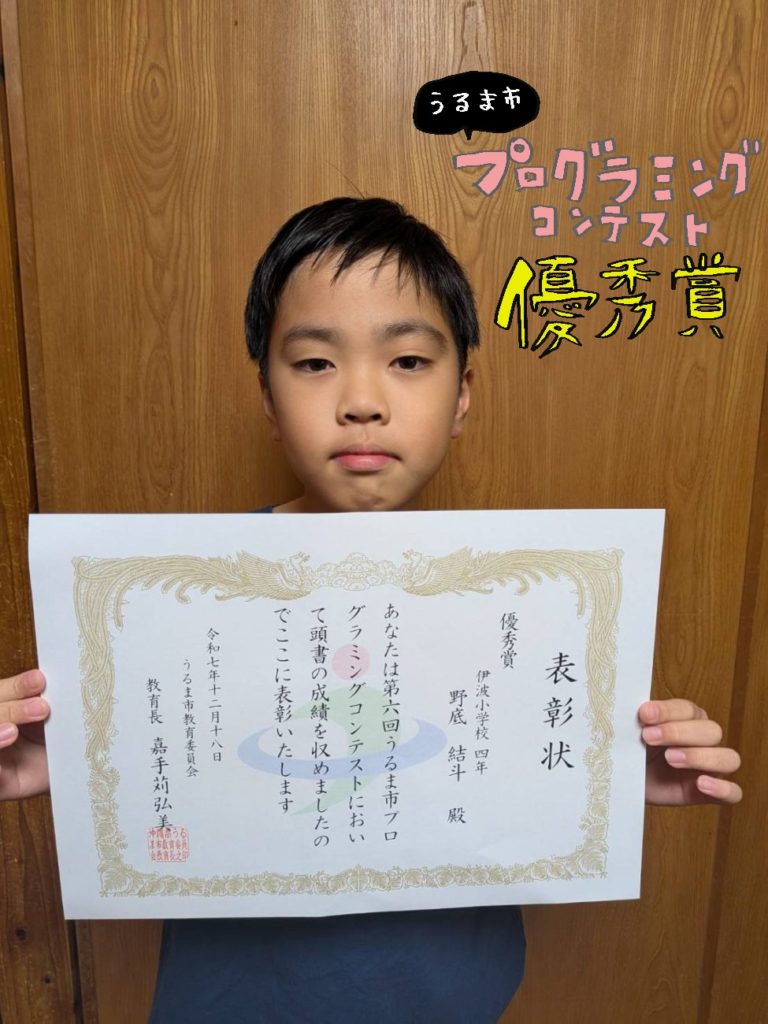 うるま市
プログラミング
コンテスト
優秀賞
表彰状
優秀賞
伊波小学校 四年
野底 結斗 殿
あなたは第六回うるま市プロ
グラミングコンテストにおい
て頭書の成績を収めましたの
でここに表彰いたします
令和七年十二月十八日
うるま市教育委員会
教育長 嘉手苅弘美